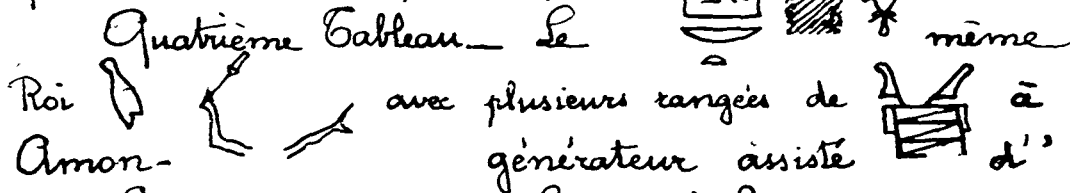 Quatrième Tableau_ Le même
Roi avec plusieurs rangées de à
Amon- générateur assisté d''